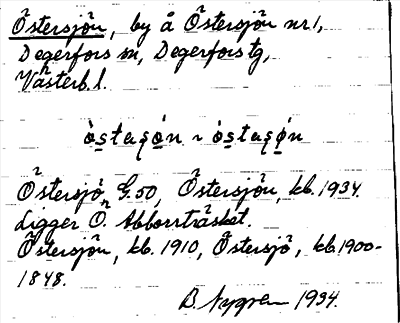 Östersjön, by å Östersjön nr 1,
Degerfors sn, Degerfors tg,
Västerb. l.
òstasọ́n ~ òstasǿn
Östersjön G.50, Östersjön, kb. 1934.
Ligger Ö. Abborrträsket.
Östersjön, kb. 1910, Östersjö, kb. 1900-
1848.
B. Nygren 1934.